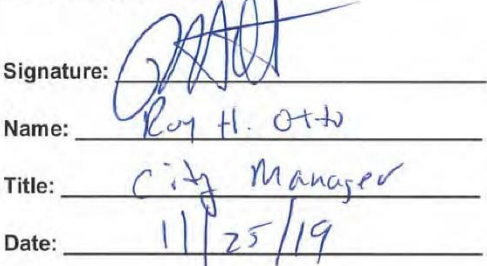 Signature:
Name: Roy H. Otto
Title: City Manager
Date: 11/25/19